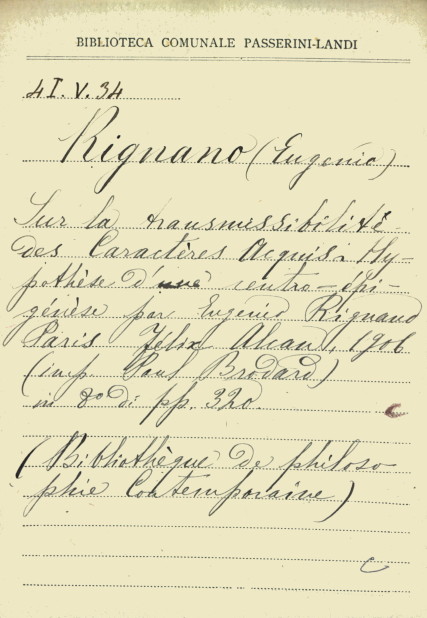 BIBLIOTECA COMUNALE PASSERINI-LANDI
4I.V.34
Rignano (Eugenio)
Sur la transmissibilité
des Caractères Acquis: Hy-
pothèse d'une centro-épi-
génèse par Eugenio Rignano
Paris Félix Alcan, 1906
(imp Paul Brodard)
in 8° di pp. 320.
(Bibliothèque de philoso
phie Contemporaine)
C